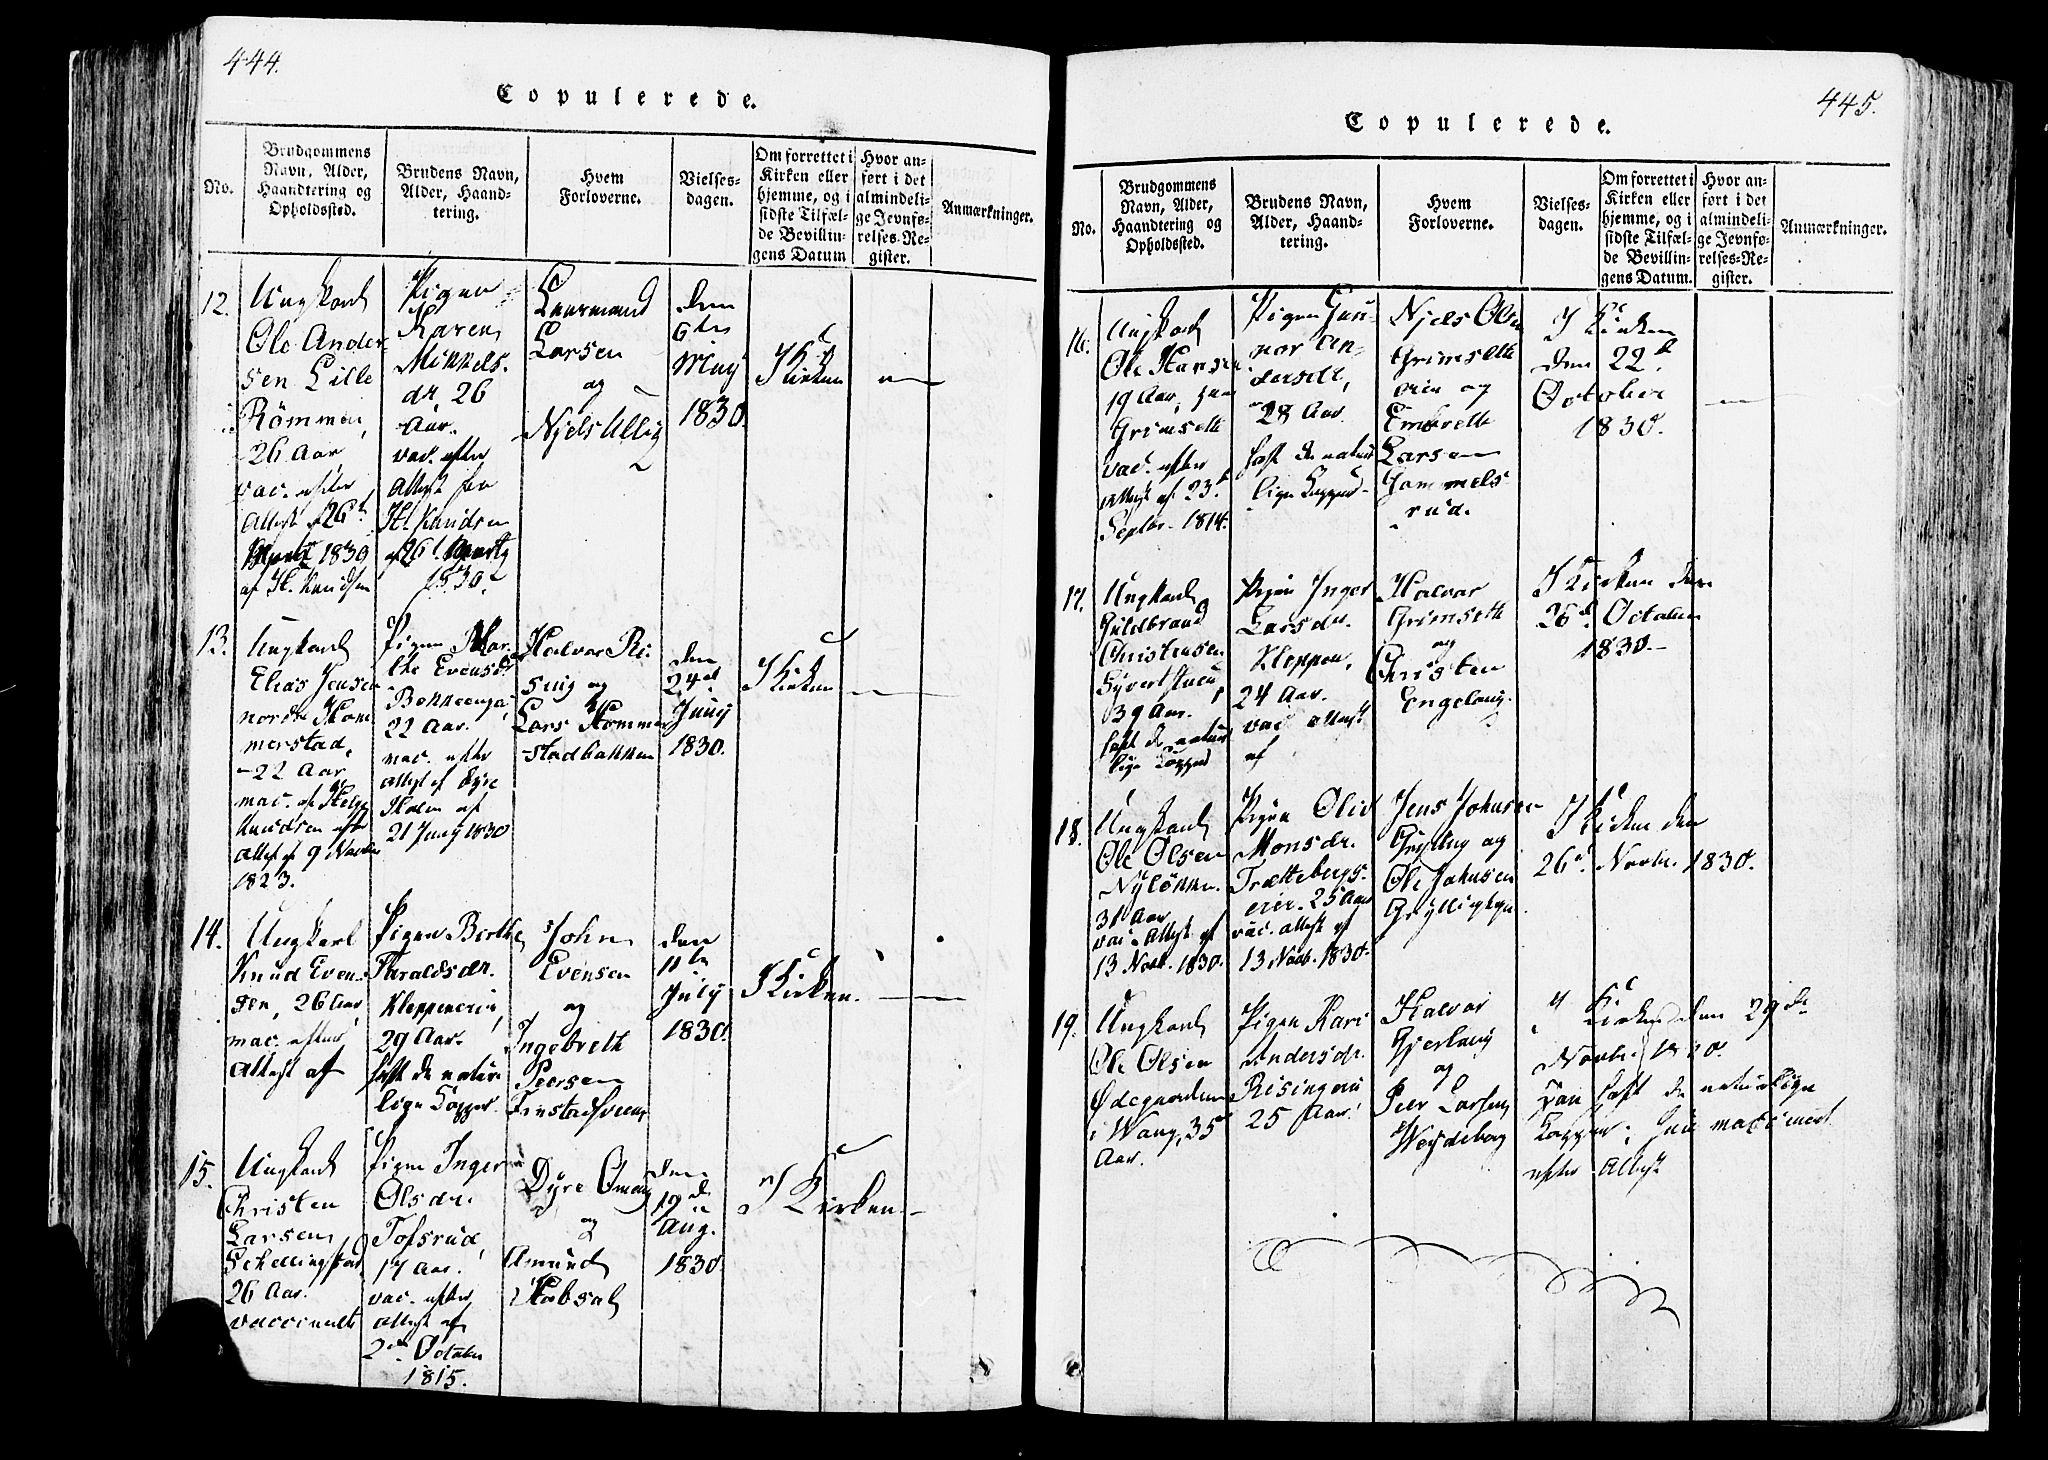 444.
Copulerede.
No.
Brudgommens
Navn, Alder,
Haandtering og
Opholdssted.
Brudens Navn,
Alder, Haand-
tering.
Hvem
Forloverne.
Vielses-
dagen.
Om forrettet i
Kirken eller
hjemme, og i
sidste Tilfæl-
de Bevillin-
gens Datum
Hvor an-
ført i det
almindeli-
ge Jevnfø-
relses-Re-
gister.
Anmærkninger.
12.
Ungkarl
Ole Ander-
sen Lille
Römmen,
26 Aar
vac. efter
Attest af 26t
1830
af H. Knudsen
Pigen
Karen
Mikkels-
dr 26
Aar.
vac. efter
Attest fra
H. Knudsen
af 26t
1830
Leermand
Larsen
og
Njels Ullig
den
6te
May
1830.
I Kirken
13.
Ungkarl
Elias Jensen
nordre Hom-
merstad,
22 Aar
vac. af Helge
Knudsen efter
Attest af 9 Novbr
1823.
Pigen Mar-
the Evensdr
Bekkeenga,
22 Aar.
vac. efter
Attest af Dyre
Holen af
21 Juny 1830
Halvor Ri-
sing og
Lars Hommer-
stadbakken
den
24de
Juny
1830.
I Kirken
14.
Ungkarl
Knud Even-
sen, 26 Aar,
vac. efter
Attest af
Pigen Birthe
Haraldsdr.
Kloppeneie,
29 Aar.
haft de natur-
lige Kopper.
John
Evensen
og
Ingebreth
Peersen
den
11te
July
1830.
I Kirken.
15.
Ungkarl
Christen
Larsen
26 Aar.
vaccineret
Pigen Inger
Olsdr.
Tofsrud,
17 Aar.
vac. efter
Attest af
2den October
1815.
Dyre Omang
og
Amund
Habsal
den
19de
Aug.
1830
I Kirken.
445.
Copulerede.
No.
Brudgommens
Navn, Alder,
Haandtering og
Opholdssted.
Brudens Navn,
Alder, Haand-
tering.
Hvem
Forloverne.
Vielses-
dagen.
Om forrettet i
Kirken eller
hjemme, og i
sidste Tilfæl-
de Bevillin-
gens Datum.
Hvor an-
ført i det
almindeli-
ge Jevnfø-
relses-Re-
gister.
Anmærkninger.
16.
Ungkarl
Ole Hansen
19 Aar,
Grimseth
vac. efter
Attest af 23de
Septbr. 1814.
Pigen Gun-
nor An-
dersdtr,
28 Aar.
haft de natur-
lige Kopper
Njels Olsen
Grimseth-
eie og
Embreth
Larsen
Gammels-
rud.
I Kirken
den 22de
October
1830.
17.
Ungkarl
Guldbrand
Christensen
Syvertstuen,
39 Aar.
haft de natur-
lige Kopper
Pigen Inger
Larsdr.
Kloppen,
24 Aar.
vac Attest
af
Halvor
Grimseth
og
Christen
Engelaug.
I Kirken den
26de October
1830.
18.
Ungkarl
Ole Olsen
Nylökken.
31 Aar
vac. Attest af
13 Novb. 1830.
Pigen Olia
Monsdr.
Trættebergs-
eier. 25 Aar
vac. Attest af
13 Novb. 1830.
Jens Johnsen
og
Ole Johnsen
I Kirken den
26de Novbr. 1830.
19.
Ungkarl
Ole Olsen
Ødegaarden
i Wang, 35
Aar.
Pigen Kari
Andersdr.
Risingeeie
25 Aar.
Halvor
Gjerlaug
og
Peer Larsen
I Kirken den 29de
Novbr. 1830.
Han haft de naturlige
Kopper; hun vaccineret
efter Attest